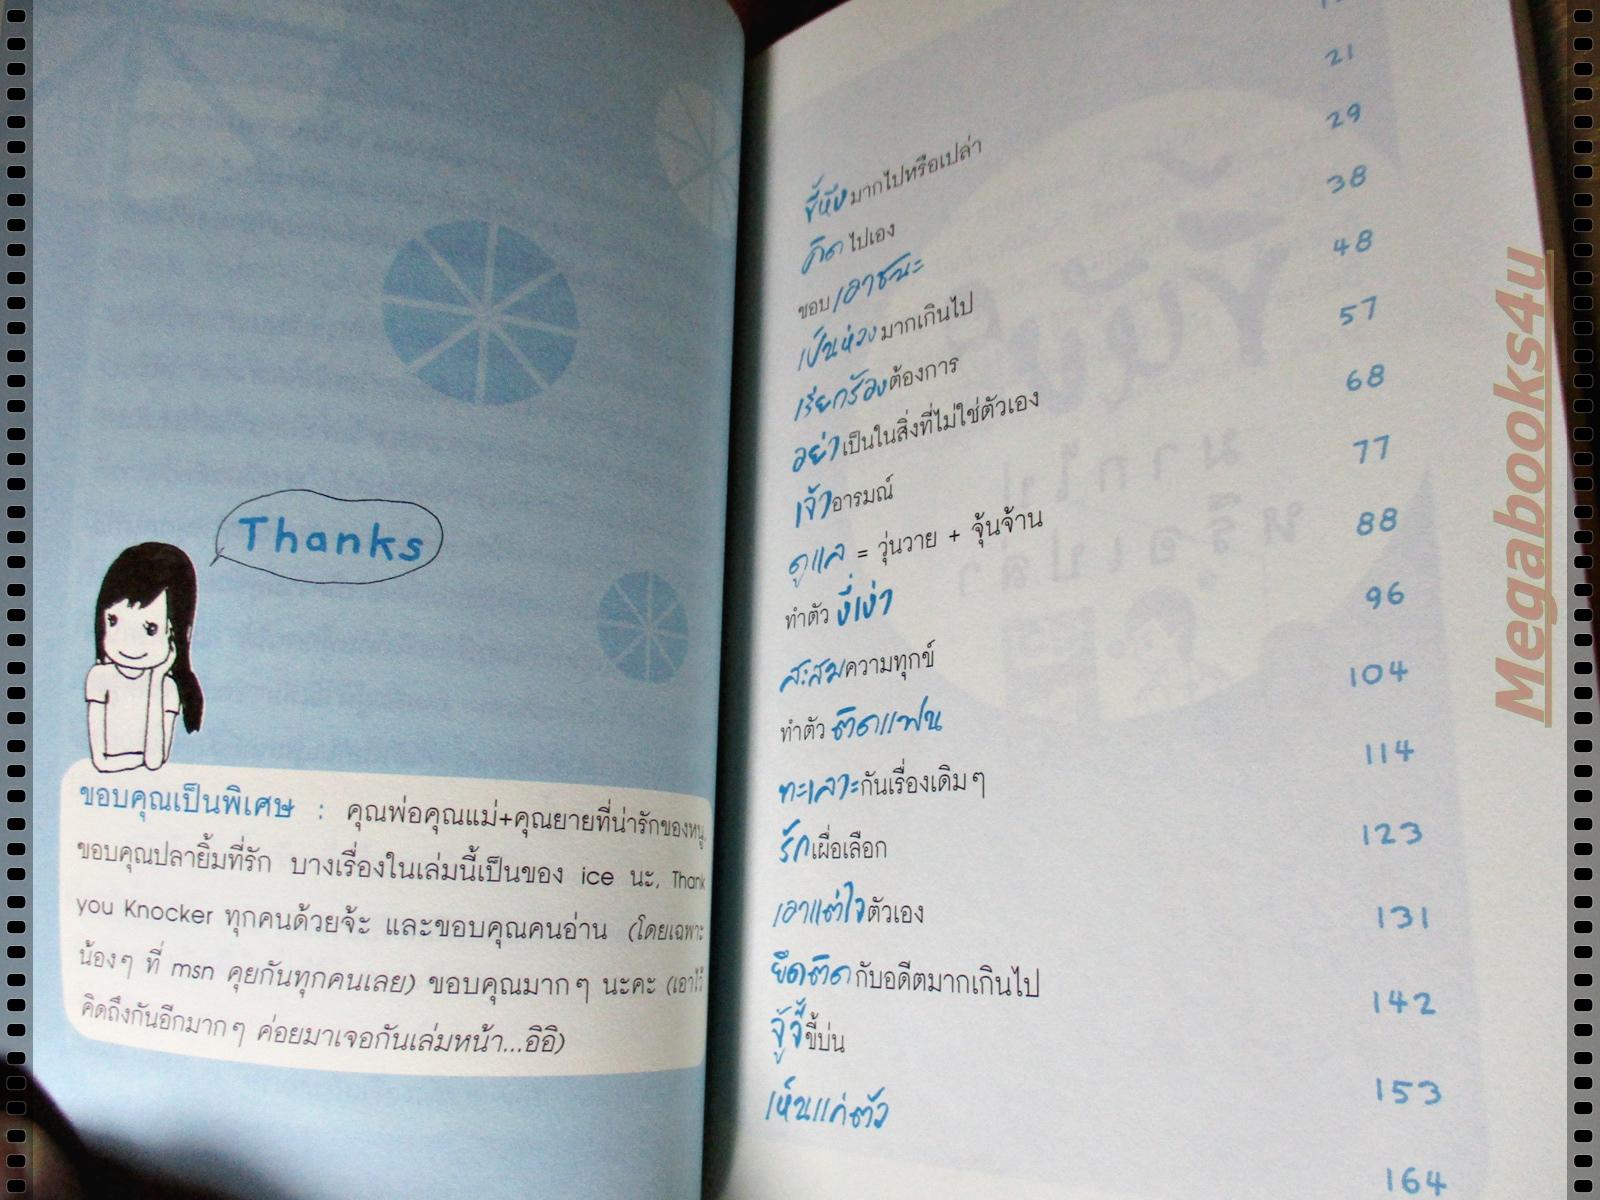 Thanks
ขอบคุณเป็นพิเศษ : คุณพ่อคุณแม่+คุณยายที่น่ารักของหนู,
ขอบคุณปลายิ้มที่รัก บางเรื่องในเล่มนี้เป็นของ ice นะ, Thank
you Knocker ทุกคนด้วยจ้ะ และขอบคุณคนอ่าน (โดยเฉพาะ
น้องๆ ที่ msn คุยกันทุกคนเลย) ขอบคุณมากๆ นะคะ (เอาไว้
คิดถึงกันอีกมากๆ ค่อยมาเจอกันเล่มหน้า...อิอิ)
21
ขี้หึงมากไปหรือเปล่า 29
คิดไปเอง 38
ชอบเอาชนะ 48
เป็นห่วงมากเกินไป 57
เรียกร้องต้องการ 68
อย่าเป็นในสิ่งที่ไม่ใช่ตัวเอง 77
เจ้าอารมณ์ 88
ดูแล = วุ่นวาย + จุ้นจ้าน 96
ทำตัวงี่เง่า 104
สะสมความทุกข์ 114
ทำตัวติดแฟน 123
ทะเลาะกันเรื่องเดิมๆ 131
รักเผื่อเลือก 142
เอาแต่ใจตัวเอง 153
ยึดติดกับอดีตมากเกินไป 164
จู้จี้ขี้บ่น
เห็นแก่ตัว
Megabooks4u